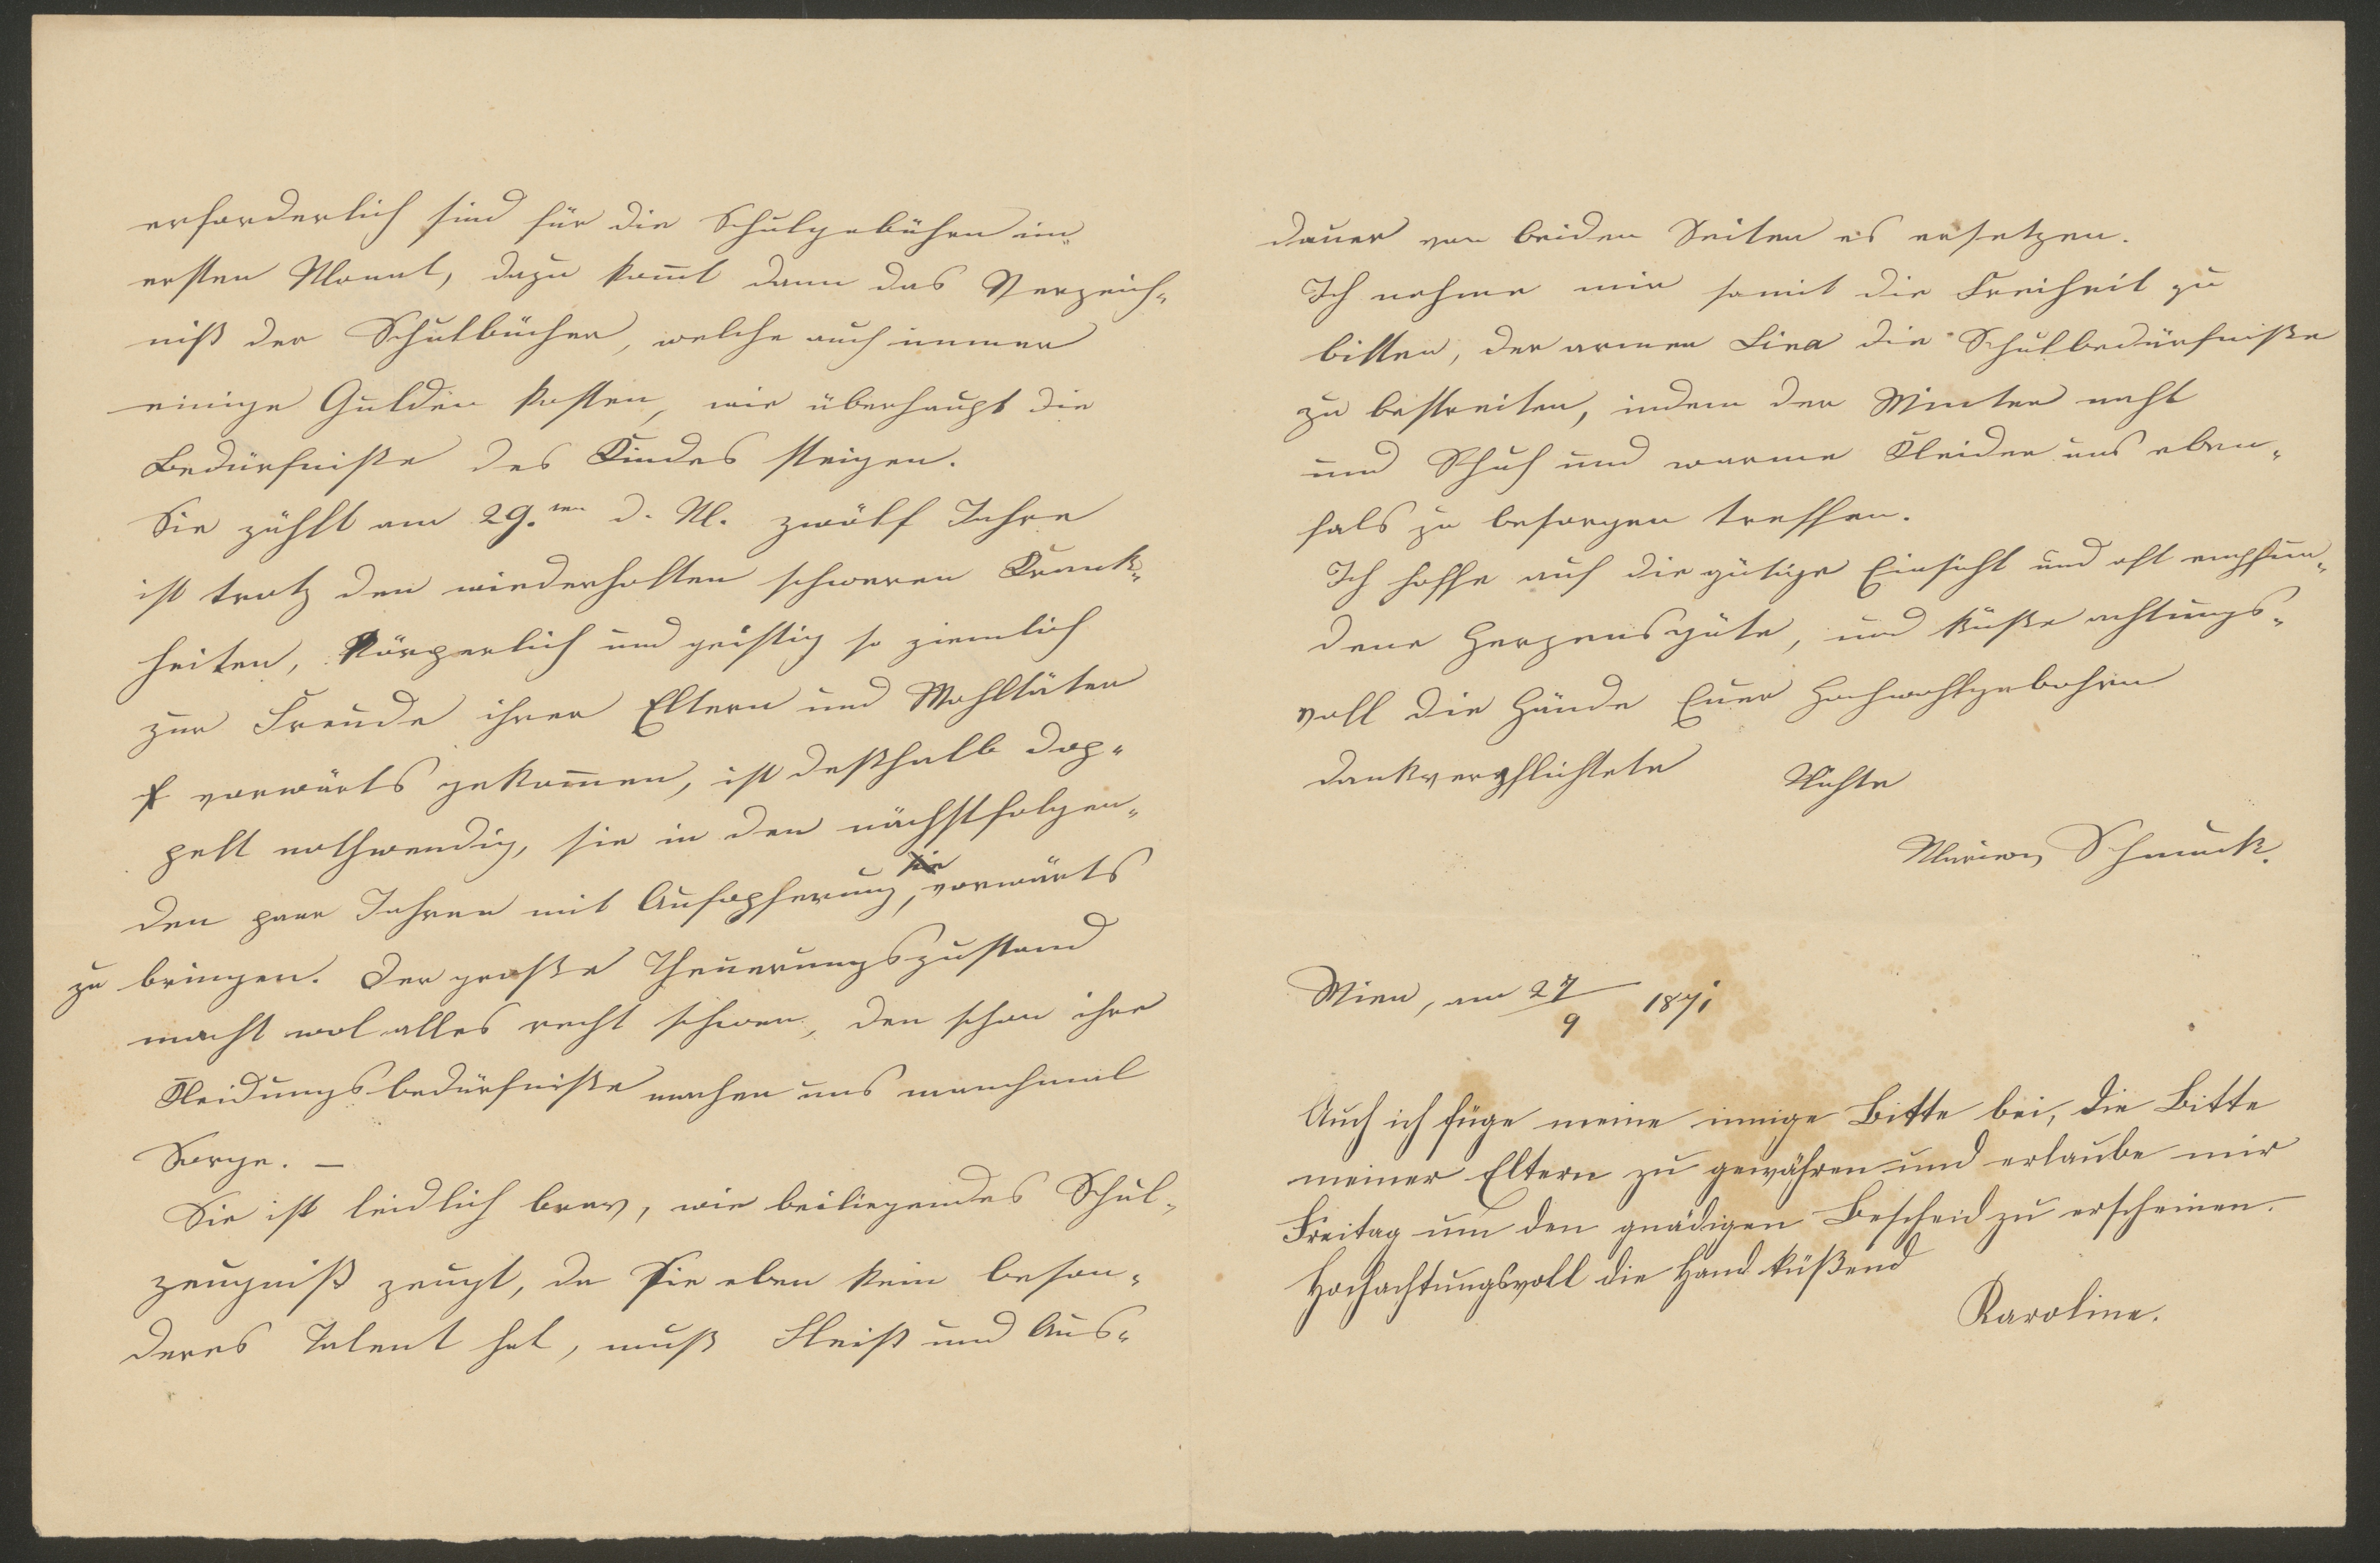 erforderlich sind für die Schulgebühren im
ersten Monat, dazu kom̄t dann das Verzeich-
niß der Schulbücher, welche auch immer
einige Gulden kosten, wie überhaupt die
Bedürfniße des Kindes steigen.
Sie zählt am 29.ten d. M. zwölf Jahre
ist trotz den wiederholten schweren Krank-
heiten, körperlich und geistig so ziemlich
zur Freude ihrer Eltern und Wohltäter
vorwärts gekom̄en, ist deßhalb dop-
pelt nothwendig, sie in den nächstfolgen-
den paar Jahren mit Aufopferung, sie vorwärts
zu bringen. Der große Theuerungszustand
macht wol alles recht schwer, den schon ihre
Kleidungsbedürfniße machen uns manchmal
Sorge. –
Sie ist leidlich brav, wie beiliegendes Schul-
zeugniß zeugt, da Sie eben kein beson-
deres Talent hat, muß Fleiß und Aus-
dauer von beiden Seiten es ersetzen.
Ich nehme mir somit die Freiheit zu
bitten, der armen Lina die Schulbedürfniße
zu bestreiten, indem der Winter naht
und Schuh und warme Kleider uns eben-
fals zu besorgen treffen.
Ich hoffe auf die gütige Einsicht und oft empfun-
dene Herzensgüte, und küße achtungs-
voll die Hände Euer Hochwohlgebohren
dankverpflichtete Nichte
Schmuck.
Wien, am 27/9 1871
Auch ich füge meine innige Bitte bei, die Bitte
meiner Eltern zu gewähren und erlaube mir
Freitag um den gnädigen Bescheid zu erscheinen.
Hochachtungsvoll die Hand küßend
Karoline.